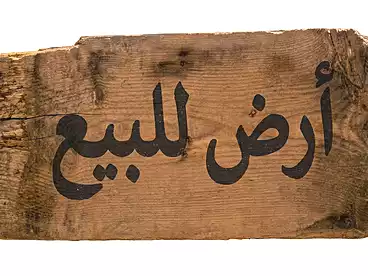 أرض للبيع